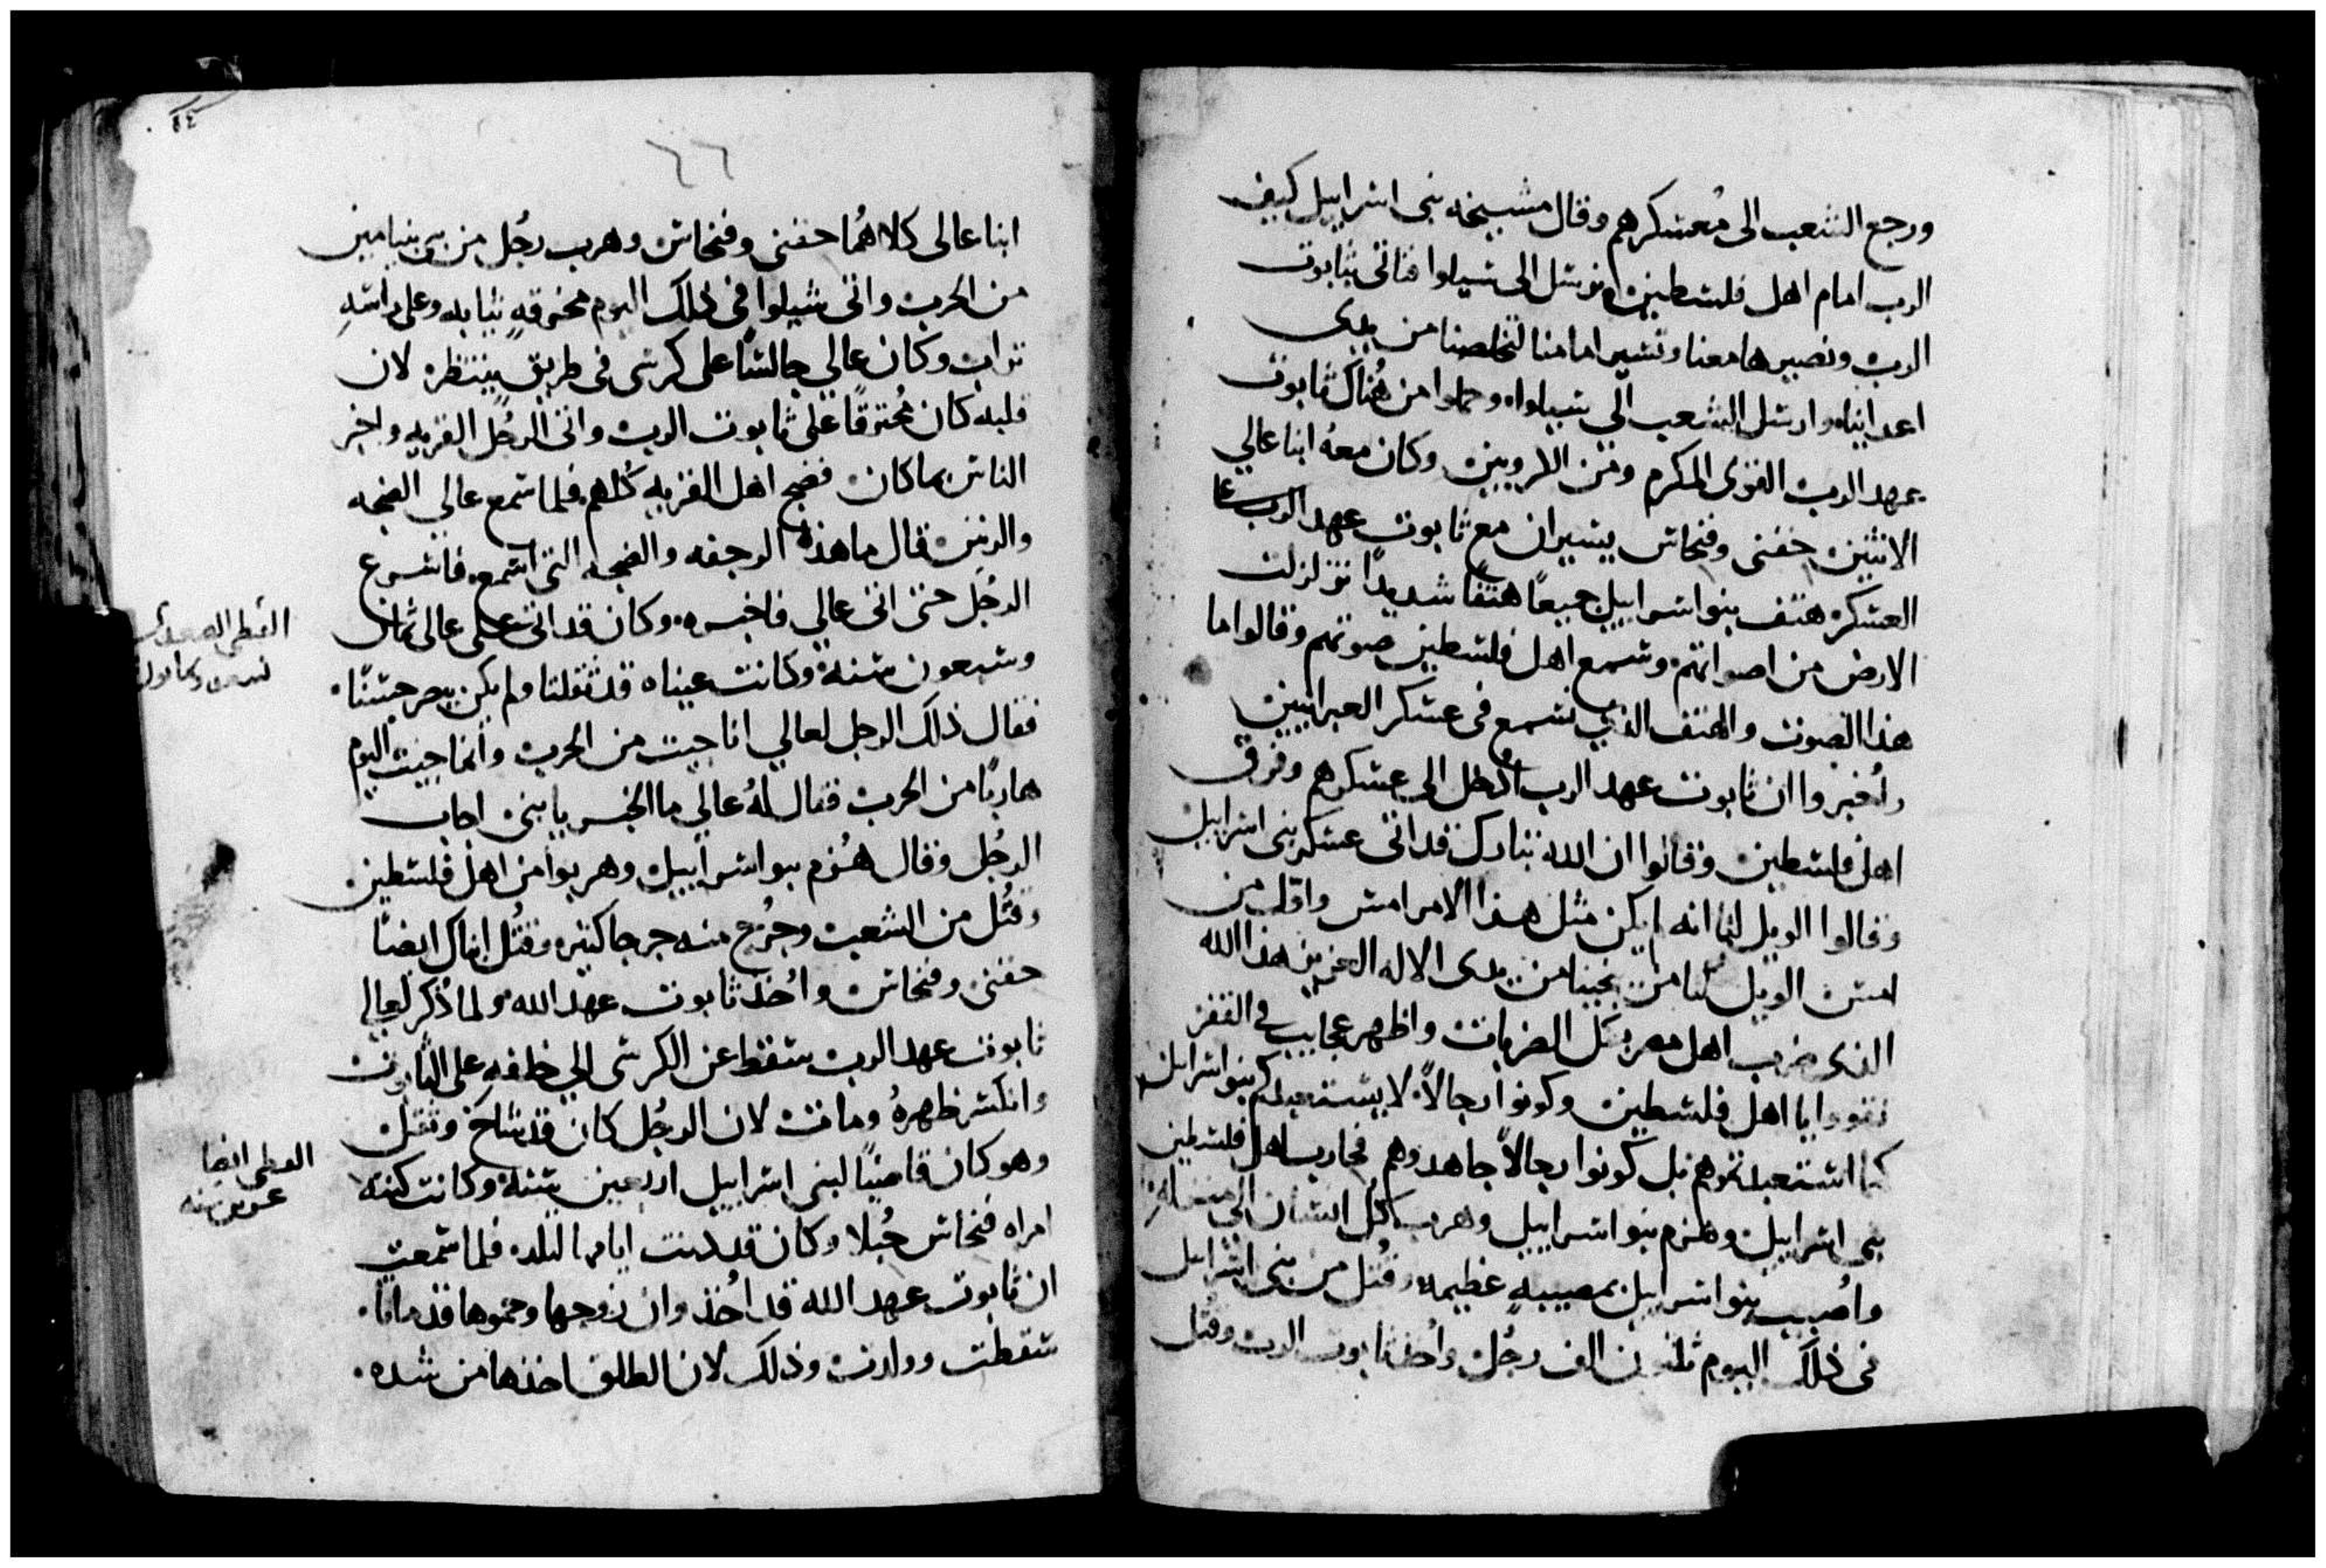 ورجع الشعب الى مُعسكرهم وقال مشيخه بنى اسراييل كيف
الرب امام اهل فلسطين ونرسل الى شيلوا فناتى بثابوت
الرب ونصيرها معنا وتسير امامنا لتخلصنا من يدى
اعداينا وارسل الشعب الى شيلوا وحملوا من هُناك ثابوت
عهد الرب القوى المكرم ومن الاروبين وكان معهُ ابنا عالي
الاثنين حفنى وفنحاس يسيران مع ثابوت عهد الرب
العسكر هتف بنو اسراييل جميعاً هتفاً شديداً تزلزلت
الارض من اصواتهم وسمع اهل فلسطين صوتهم وقالوا ما
هذا الصوت والهتف الذي نسمع فى عسكر العبرانيين
واُخبروا ان ثابوت عهد الرب اُدخل الى عسكرهم وفرق
اهل فلسطين وقالوا ان الله تبارك قد اتى عسكر بنى اسراييل
وقالوا الويل لنا انه لم يكن مثل هذا الامر امس واول من
امس الويل لنا من ينجينا من يدى الاله العزيز هذا الله
الذى ضرب اهل مصر بكل الضربات واظهر عجايب في القفر
تقووا يا اهل فلسطين وكونوا رجالاً لا يستعبدكم بنو اسراييل
كما استعبدتموهم بل كونوا رجالاً جاهدوهم فحارب اهل فلسطين
بنى اسراييل وهزم بنو اسراييل وهرب كل انسان الى منزله
واُصيب بنو اسراييل بمصيبه عظيمه وقُتل من بنى اسراييل
فى ذلك اليوم ثلثين الف رجُل واُخذ ثابوت الرب وقُتل
٦٦
ابنا عالى كلاهُما حفنى وفنحاس وهرب رجُل من بنى بنيامين
من الحرب واتى شيلوا فى ذلك اليوم مخرقه ثيابه وعلى راسهِ
تراب وكان عالي جالساً على كرسى فى طريق ينتظر لان
قلبه كان مُحترقاً على ثابوت الرب واتى الرجُل القريه واخبر
الناس بما كان فضج اهل القريه كلهم فلما سمع عالي الضجه
والرنين قال ما هذه الرجفه والضجه التى اسمع فاسرع
الرجُل حتى اتى عالي فاخبره وكان قد اتى على عالى ثمان
وسبعون سنة وكانت عيناه قد ثقلتا ولم يكن يبصر حسناً
فقال ذلك الرجل لعالي انا جيت من الحرب وانما جيت اليوم
هارباً من الحرب فقال لهُ عالي ما الخبر يا بنى اجاب
الرجُل وقال هُزم بنو اسراييل وهربوا من اهل فلسطين
وقُتل من الشعب وجُرح منه جرحا كثيره وقُتل ابناك ايضاً
حفنى وفنحاس واُخذ ثابوت عهد الله ولما ذُكر لعالي
ثابوت عهد الرب سقط عن الكرسى الي خلفه على الثابوت
وانكسر ظهرهُ ومات لان الرجُل كان قد شاخ وثقل
وهو كان قاضياً لبنى اسراييل اربعين سنة وكانت كنته
امراه فنحاس حُبلا وكان قد دنت ايامها لتلد فلما سمعت
ان ثابوت عهد الله قد اُخذ وان زوجها وحموها قد ماتا
سقطت وولدت وذلك لان الطلق اخذها من شده
القبطى
القبطى ايضا
عشرين سنه